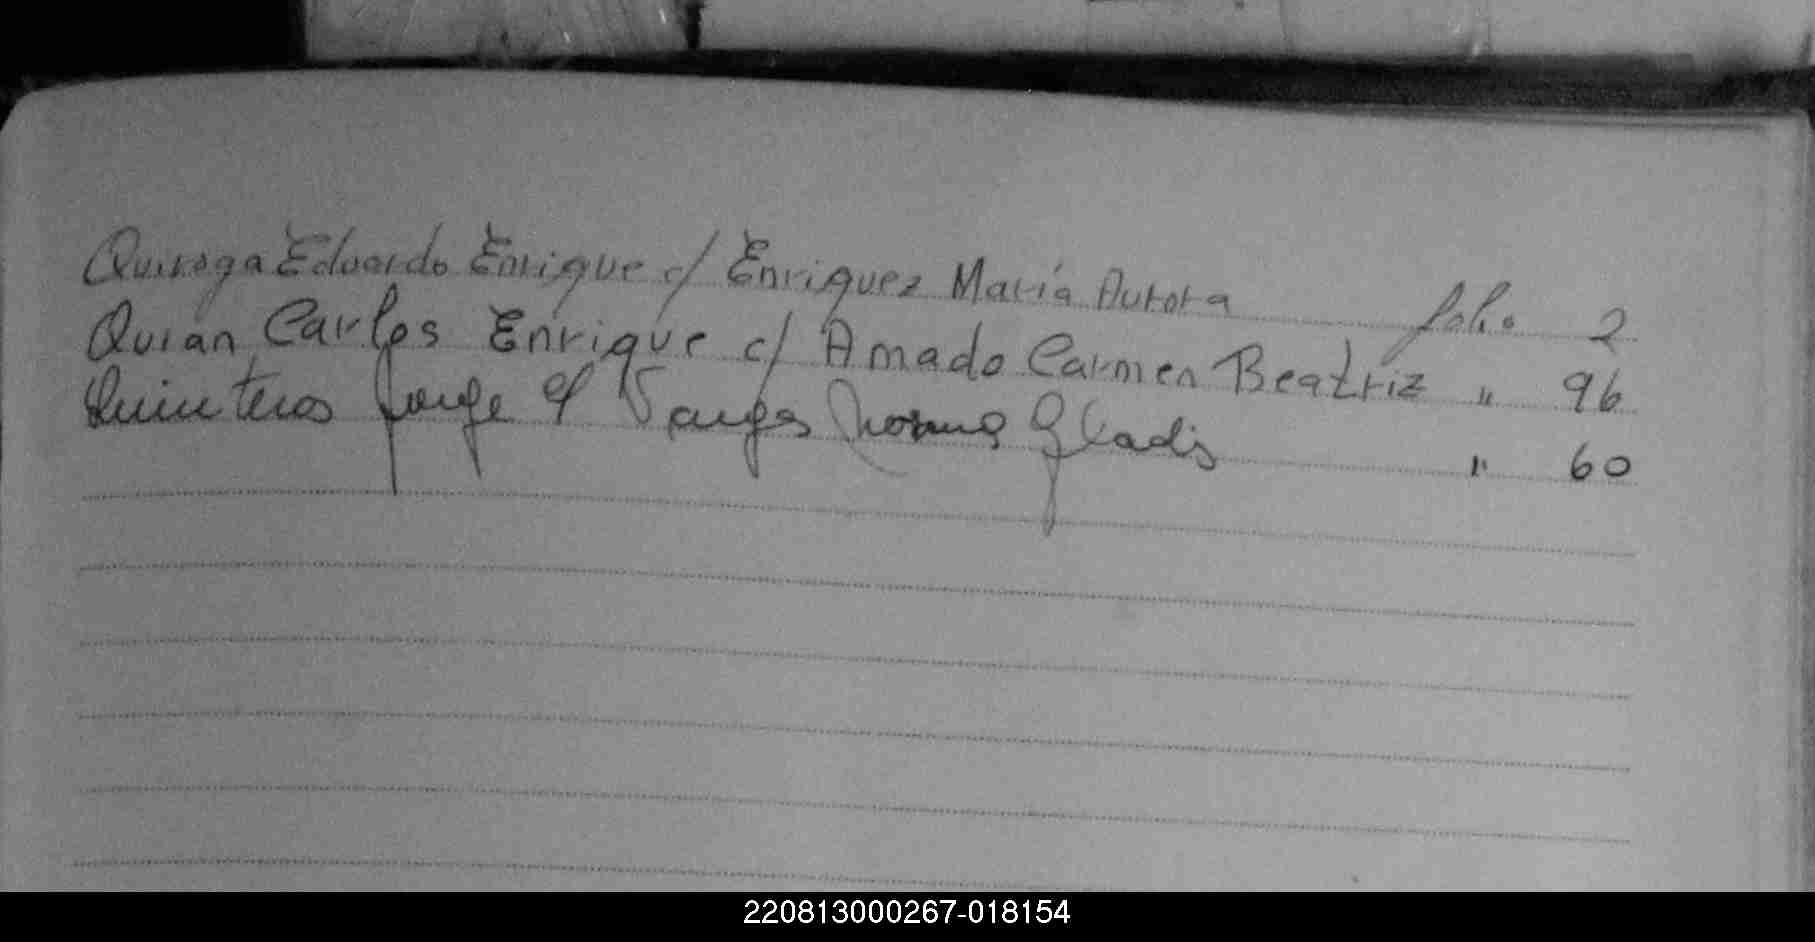 Quiroga Eduardo Enrique c/ Enriquez María Aurora folio 2
Quian Carlos Enrique c/ Amado Carmen Beatriz " 96
Quinteros Jorge c/ Vargas Norma Gladis " 60
220813000267-018154